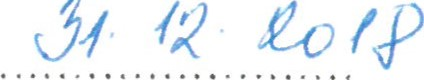 31. 12. 2018